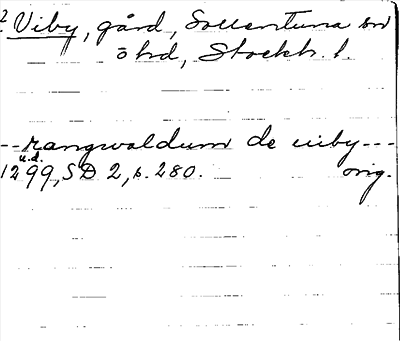 ? Viby, gård, Sollentuna sn
ö hd, Stockh. l.
-- rangwaldum de uiby ---
u.d.
1299, SD 2, s. 280. orig.